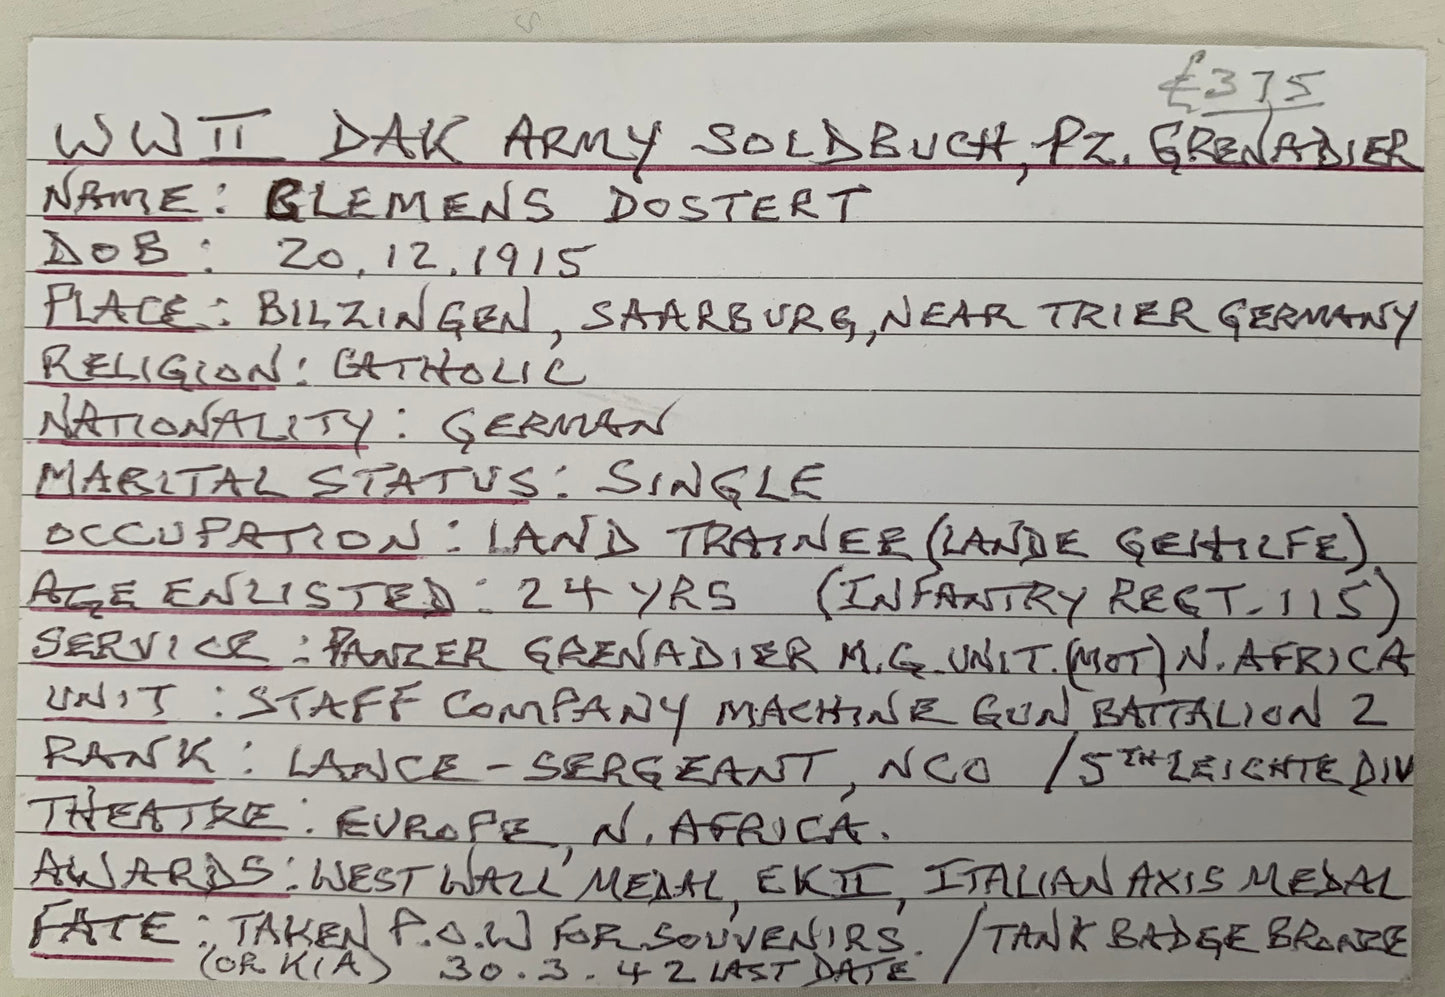 £375
WW II DAK ARMY SOLDBUCH, PZ. GRENADIER
NAME: CLEMENS DOSTERT
DOB: 20.12.1915
PLACE: BILZINGEN, SAARBURG, NEAR TRIER GERMANY
RELIGION: CATHOLIC
NATIONALITY: GERMAN
MARITAL STATUS: SINGLE
OCCUPATION: LAND TRAINEE (LANDE GEHILFE)
AGE ENLISTED: 24 YRS (INFANTRY REGT. 115)
SERVICE: PANZER GRENADIER M.G. UNIT. (MOT) N. AFRICA
UNIT: STAFF COMPANY MACHINE GUN BATTALION 2
RANK: LANCE-SERGEANT, NCO / 5TH LEICHTE DIV
THEATRE: EUROPE, N. AFRICA.
AWARDS: WEST WALL MEDAL, EK II, ITALIAN AXIS MEDAL
FATE: TAKEN P.O.W FOR SOUVENIRS. / TANK BADGE BRONZE
(OR KIA) 30.3.42 LAST DATE